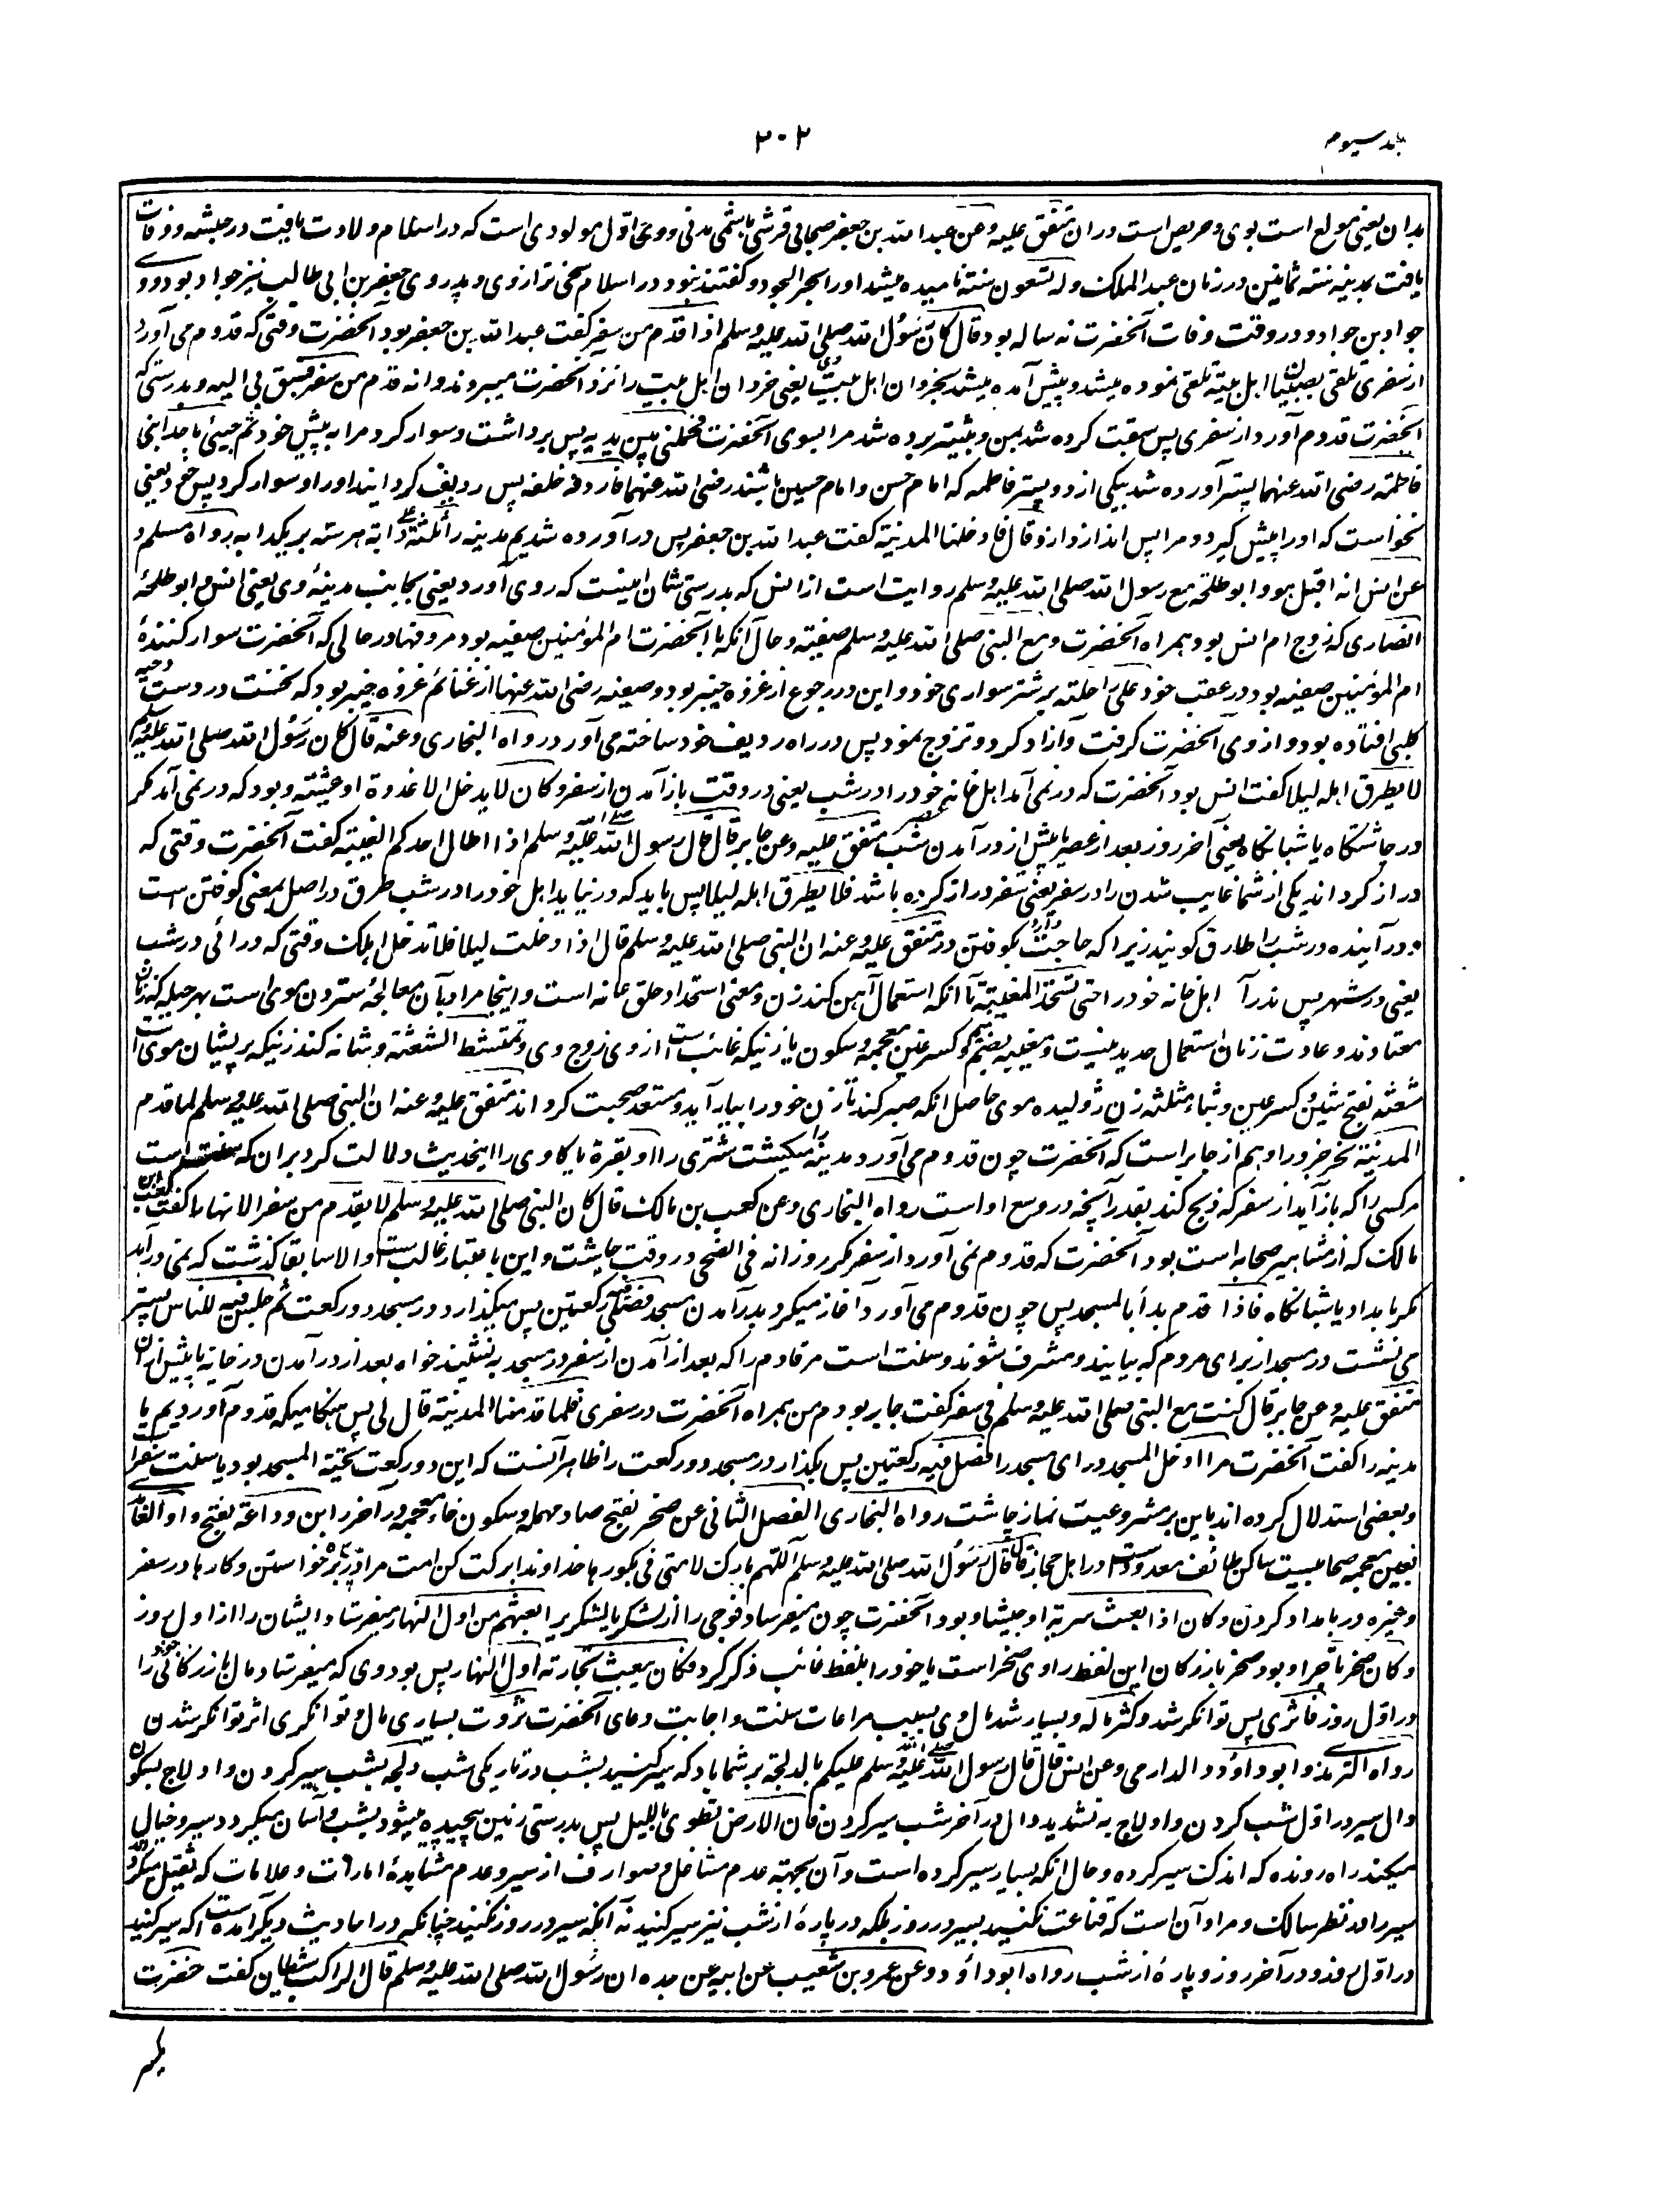 جلد سیوم
۳۰۲
بدان یعنی مولع است بوی و حریص است در ان متفق علیه وعن عبد الله بن جعفر صحابی قرشی هاشمی مدنی و وی اول مولودی است که در اسلام ولادت یافت در حبشه و وفات
یافت بمدینه سنه ثمانین در زمان عبد الملک وله تسعون سنة نامیده میشد اورا بحر الجود و گفتند نبود در اسلام سخی تر از وی و پدر وی جعفر بن ابی طالب نیز جواد بود و وے
جواد بن جواد و در وقت وفات آنحضرت نه ساله بود قال کان رسول الله صلی الله علیه وسلم اذا قدم من سفر گفت عبد الله بن جعفر بود آنحضرت وقتی که قدوم می آورد
از سفری تلقی بصبیان اهل بیته تلقی نموده میشد و پیش آمده میشد بخردان اهل بیت وی یعنی خردان اهل بیت را نزد آنحضرت میبردند وانه قدم من سفر فسبق بی الیه و بدرستی که
آنحضرت قدوم آورد از سفری پس سبقت کرده شد بمن و پیشتر برده شد مرا بسوی آنحضرت فحملنی بین یدیه پس برداشت و سوار کرد مرا به پیش خود ثم جیئ باحد ابنی
فاطمة رضی الله عنهما پستر آورده شد بیکی از دو پسر فاطمه که امام حسن و امام حسین باشند رضی الله عنهما فاردفه خلفه پس ردیف گردانید اورا و سوار کرد پس خود یعنی
نخواست که اورا پیش گیرد و مرا پس اندازد ازو قال فادخلنا المدینة گفت عبد الله بن جعفر پس در آورده شدیم مدینه را ثلثة علی دابة هر سه بر یکدابه رواه مسلم و
عن انس انه اقبل هو و ابو طلحة مع رسول الله صلی الله علیه وسلم روایت است از انس که بدرستی شان اینست که روی آورد یعنی بجانب مدینه وی یعنی انس و ابو طلحهٔ
انصاری که زوج ام انس بود همراه آنحضرت و مع النبی صلی الله علیه وسلم صفیة و حال آنکه با آنحضرت ام المؤمنین صفیه بود مردفها در حالی که آنحضرت سوار کنندهٔ
ام المؤمنین صفیه بود در عقب خود علی راحلته بر شتر سواری خود و این در رجوع از غزوه خیبر بود و صفیه رضی الله عنها از غنائم غزوه خیبر بود که نخست در دست دحیه
کلبی افتاده بود و از وی آنحضرت گرفت و آزاد کرد و تزوج نمود پس در راه ردیف خود ساخته می آورد رواه البخاری وعنه قال کان رسول الله صلی الله علیه وسلم
لا یطرق اهله لیلا گفت انس بود آنحضرت که در نمی آمد اهل خانه خود را در شب یعنی در وقت باز آمدن از سفر و کان لا یدخل الا غدوة او عشیة و بود که در نمی آمد مگر
در چاشتگاه یا شبانگاه یعنی آخر روز بعد از عصر یا پیش از در آمدن شب متفق علیه وعن جابر قال قال رسول الله صلی الله علیه وسلم اذا اطال احدکم الغیبة گفت آنحضرت وقتی که
دراز گرداند یکی از شما غایب شدن را در سفر یعنی سفر دراز کرده باشد فلا یطرق اهله لیلا پس باید که در نیاید اهل خود را در شب طرق در اصل بمعنی کوفتن است
و در آینده در شب را طارق گویند زیرا که حاجت دارد بکوفتن در متفق علیه وعنه ان النبی صلی الله علیه وسلم قال اذا دخلت لیلا فلا تدخل اهلک وقتی که در ائی در شب
یعنی در شهر پس ندرآ اهل خانه خود را حتی تستحد المغیبة تا آنکه استعمال آهن کند زن و معنی استحداد حلق عانه است و اینجا مراد بآن معالجهٔ ستردن موی است بهر حیله که زنان
معتادند و عادت زنان استعمال حدید نیست و مغیبه بضم میم و کسر غین معجمه و سکون یا زنیکه غائب است از وی زوج وی و تمتشط الشعثة و شانه کند زنیکه پریشان موی است
شعثه بفتح شین و کسر عین و ثاء مثلثه زن ژولیده موی حاصل انکه صبر کند تا زن خود را بیاراید و مستعد صحبت گرداند متفق علیه وعنه ان النبی صلی الله علیه وسلم لما قدم
المدینة نحر جزورا و هم از جابر است که آنحضرت چون قدوم می آورد مدینه را میکشت شتری را او بقرة یا گاوی را این حدیث دلالت کرد بران که سنت است
مرکسی را که باز آید از سفر که ذبح کند بقدر آنچه در وسع او است رواه البخاری وعن کعب بن مالک قال کان النبی صلی الله علیه وسلم لا یقدم من سفر الا نهارا گفت کعب ابن
مالک که از مشاهیر صحابه است بود آنحضرت که قدوم نمی آورد از سفر مگر روزانه فی الضحی در وقت چاشت و این باعتبار غالب است والا سابقا گذشت که نمی در آمد
مگر بامداد یا شبانگاه فاذا قدم بدأ بالمسجد پس چون قدوم می آورد آغاز میکرد بدر آمدن مسجد فصلی فیه رکعتین پس میگذارد در مسجد دو رکعت ثم جلس فیه للناس پستر
می نشست در مسجد از برای مردم که بیایند و مشرف شوند و سنت است مر قادم را که بعد از آمدن از سفر در مسجد به نشیند خواه بعد از در آمدن در خانه یا پیش ازان
متفق علیه وعن جابر قال کنت مع النبی صلی الله علیه وسلم فی سفر گفت جابر بودم من همراه آنحضرت در سفری فلما قدمنا المدینة قال لی پس هنگامیکه قدوم آوردیم ما
مدینه را گفت آنحضرت مرا ادخل المسجد در ای مسجد را فصل فیه رکعتین پس بگذار در مسجد دو رکعت را ظاهر آنست که این دو رکعت تحیة المسجد بود یا سنت سفر است
و بعضی استدلال کرده اند باین بر مشروعیت نماز چاشت رواه البخاری الفصل الثانی عن صخر بفتح صاد مهمله و سکون خاء معجمه و در آخر را ابن وداعة بفتح واو الغامدے
بغین معجمه صحابیست ساکن طائف معدود است در اهل حجاز قال قال رسول الله صلی الله علیه وسلم اللهم بارک لامتی فی بکورها خداوندا برکت کن امت مرا در پگاه خواستن و کارها در سفر
و غیره در بامداد کردن و کان اذا بعث سریة او جیشا و بود آنحضرت چون میفرستاد فوجی را از لشکر یا لشکریرا بعثهم من اول النهار میفرستاد ایشان را از اول روز
و کان صخر تاجرا و بود صخر بازرگان این لفظ راوی صخر است یا خود را بلفظ غائب ذکر کرد فکان یبعث تجارته اول النهار پس بود وی که میفرستاد مال بازرگانی خود را
در اول روز فاثری پس توانگر شد و کثر ماله و بسیار شد مال وی بسبب مراعات سنت و اجابت دعای آنحضرت ثروت بسیاری مال و توانگری اثر توانگر شدن
رواه الترمذے وابو داود والدارمی وعن انس قال قال رسول الله صلی الله علیه وسلم علیکم بالدلجة بر شما باد که سیر کنید بشب در تاریکی شب دلجه بشب سیر کردن و ادلاج بسکون
دال سیر در اول شب کردن و ادلاج به تشدید دال در آخر شب سیر کردن فان الارض تطوی باللیل پس بدرستی زمین پیچیده میشود بشب و آسان میگردد سیر و خیال
میکند راه رونده که اندک سیر کرده و حال انکه بسیار سیر کرده است و آن بجهة عدم مشاغل و صوارف از سیر و عدم مشاهدهٔ امارات و علامات که ثقیل میگرداند
سیر را در نظر سالک و مراد آن است که قناعت نکنید بسیر در روز بلکه در پارهٔ از شب نیز سیر کنید نه آنکه سیر در روز نکنید چنانکه در احادیث دیگر امده است که سیر کنید
در اول روز و در آخر روز و پارهٔ از شب رواه ابو داؤد وعن عمرو بن شعیب عن ابیه عن جده ان رسول الله صلی الله علیه وسلم قال الراکب شیطان گفت حضرت